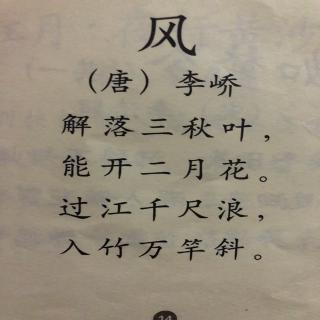 风
（唐）李峤
解落三秋叶，
能开二月花。
过江千尺浪，
入竹万竿斜。